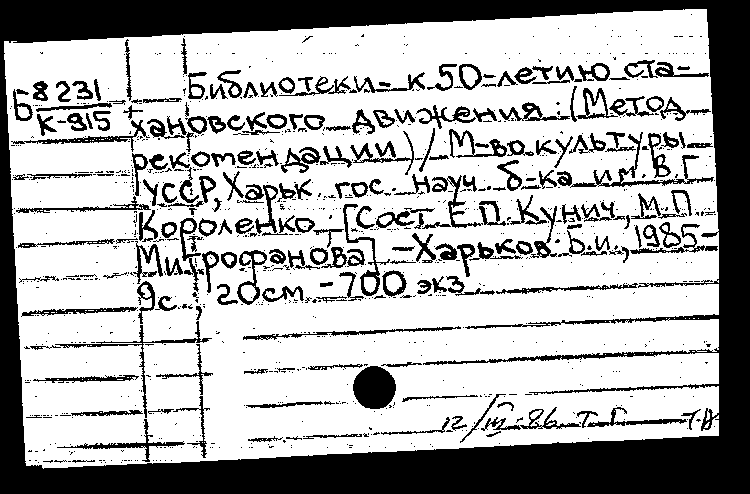 Б 8231
К-915
Библиотеки - к 50-летию ста-
хановского движения : (Метод
рекомендации) / М-во культуры
УССР, Харьк. гос. науч. б-ка им. В. Г.
Короленко ; [Сост. Е. П. Кунич, М. П.
Митрофанова] - Харьков : Б. и., 1985-
9с., 20см - 700 экз.
12/III-86 Т. Г.